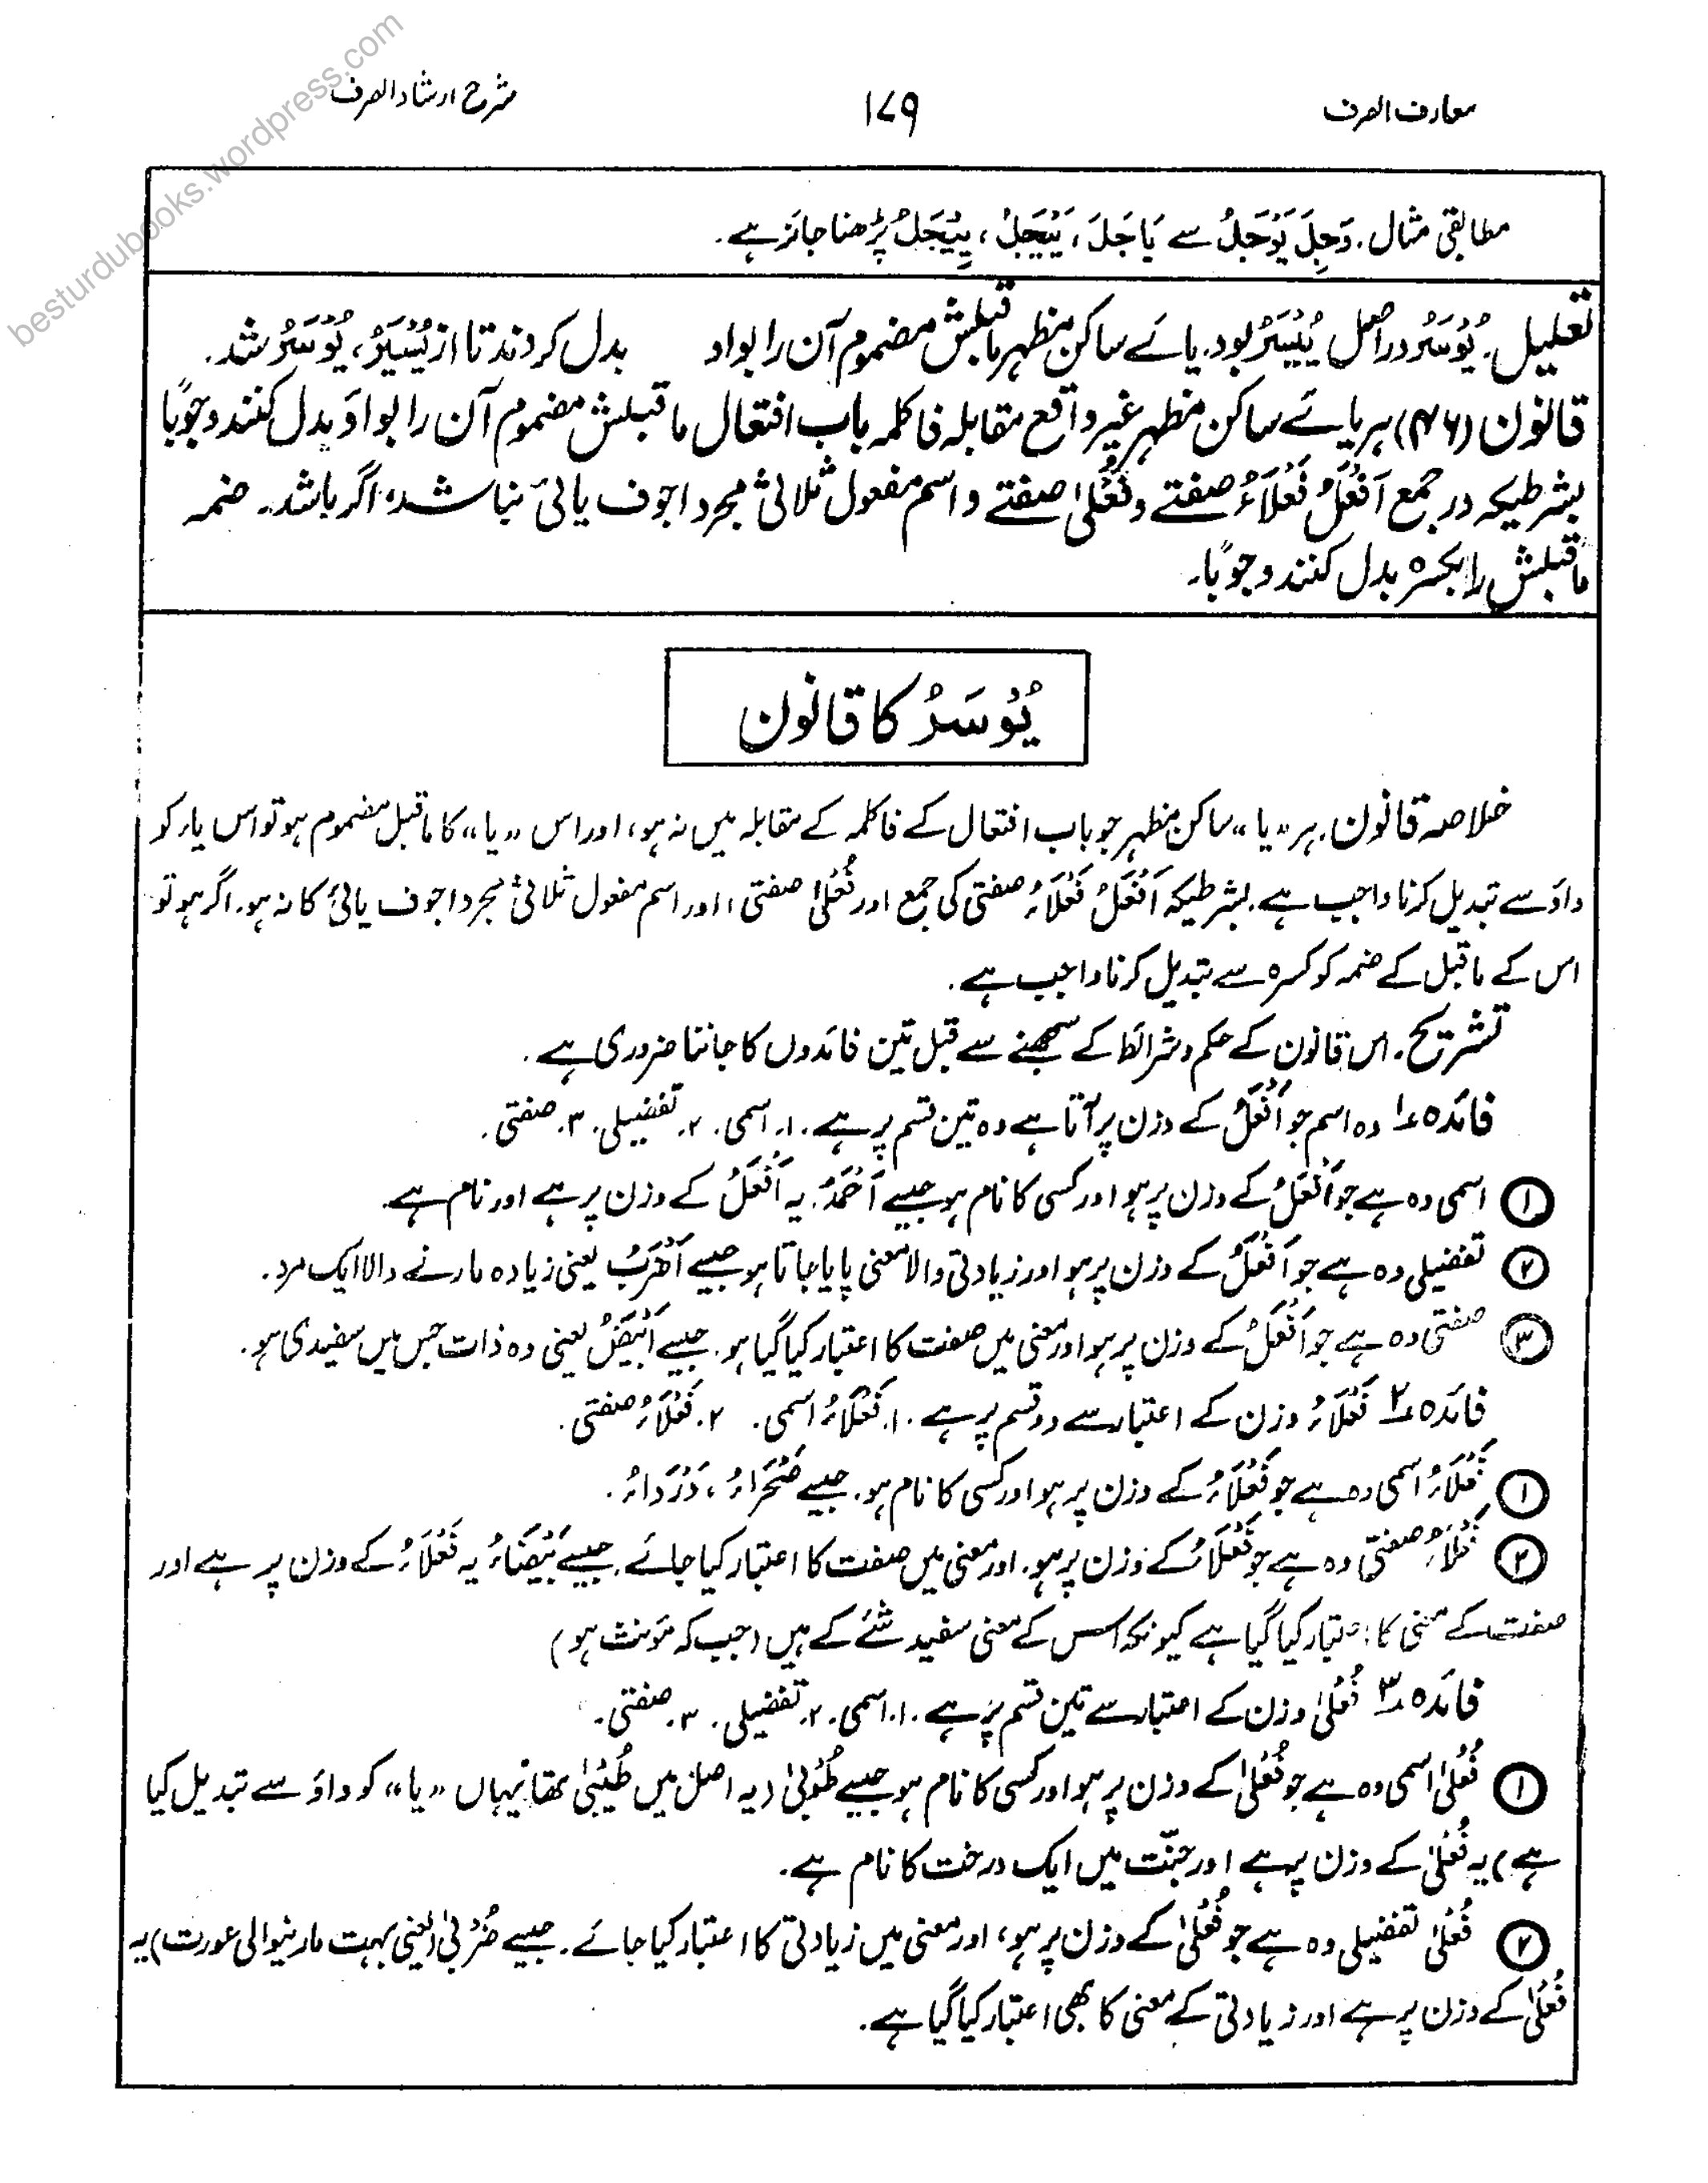 معارف الصرف
۱۷۹
شرح ارشاد الصرف
besturdubooks.wordpress.com
مطابقی مثال. وَجِلَ یَوْجَلُ سے یَاجَلُ، یَیْجَلُ، یِیْجَلُ پڑھنا جائز ہے۔
تعلیل. یُوْسَرُ دراصل یُیْسَرُ بود. یائے ساکن مظہر ماقبلش مضموم آن را بواو بدل کردند تا از یُیْسَرُ، یُوْسَرُ شد.
قانون (۴۶) ہر یائے ساکن مظہر غیر واقع مقابلہ فاکلمہ باب افتعال ماقبلش مضموم آن را بواؤ بدل کنند وجوبًا
بشرطیکہ در جمع اَفْعَلُ فَعْلَاءُ صفتے و فُعْلٰی صفتے و اسم مفعول ثلاثی مجرد اجوف یائی نباشد، اگر باشد۔ ضمہ
ماقبلش را بکسرہ بدل کنند وجوبًا۔
یُوْسَرُ کا قانون
خلاصہ قانون. ہر «یا» ساکن مظہر جو باب افتعال کے فاکلمہ کے مقابلہ میں نہ ہو، اور اس «یا» کا ماقبل مضموم ہو تو اس یار کو
واؤ سے تبدیل کرنا واجب ہے۔ بشرطیکہ اَفْعَلُ فَعْلَاءُ صفتی کی جمع اور فُعْلٰی صفتی، اور اسم مفعول ثلاثی مجرد اجوف یائی کا نہ ہو. اگر ہو تو
اس کے ماقبل کے ضمہ کو کسرہ سے تبدیل کرنا واجب ہے.
تشریح. اس قانون کے حکم و شرائط کے سمجھنے سے قبل تین فائدوں کا جاننا ضروری ہے.
فائدہ ۱؎ وہ اسم جو اَفْعَلُ کے وزن پر آتا ہے وہ تین قسم پر ہے. ۱. اسمی. ۲. تفضیلی. ۳. صفتی.
① اسمی وہ ہے جو اَفْعَلُ کے وزن پر ہو اور کسی کا نام ہو جیسے اَحْمَدُ. یہ اَفْعَلُ کے وزن پر ہے اور نام ہے.
② تفضیلی وہ ہے جو اَفْعَلُ کے وزن پر ہو اور زیادتی والا معنی پایا جاتا ہو جیسے اَضْرَبُ یعنی زیادہ مارنے والا ایک مرد.
③ صفتی وہ ہے جو اَفْعَلُ کے وزن پر ہو اور معنی میں صفت کا اعتبار کیا گیا ہو. جیسے اَبْیَضُ یعنی وہ ذات جس میں سفیدی ہو.
فائدہ ۲؎ فَعْلَاءُ وزن کے اعتبار سے دو قسم پر ہے. ۱. فَعْلَاءُ اسمی. ۲. فَعْلَاءُ صفتی.
① فَعْلَاءُ اسمی وہ ہے جو فَعْلَاءُ کے وزن پر ہو اور کسی کا نام ہو. جیسے صَحْرَاءُ، دَرْدَاءُ.
② فَعْلَاءُ صفتی وہ ہے جو فَعْلَاءُ کے وزن پر ہو. اور معنی میں صفت کا اعتبار کیا جائے. جیسے بَیْضَاءُ یہ فَعْلَاءُ کے وزن پر ہے اور
صفت کے معنی کا اعتبار کیا گیا ہے کیونکہ اس کے معنی سفید شئے کے ہیں (جب کہ مؤنث ہو)
فائدہ ۳؎ فُعْلٰی وزن کے اعتبار سے تین قسم پر ہے. ۱. اسمی. ۲. تفضیلی. ۳. صفتی.
① فُعْلٰی اسمی وہ ہے جو فُعْلٰی کے وزن پر ہو اور کسی کا نام ہو جیسے طُوْبٰی (یہ اصل میں طُیْبٰی تھا یہاں «یا» کو واؤ سے تبدیل کیا
ہے) یہ فُعْلٰی کے وزن پر ہے اور جنّت میں ایک درخت کا نام ہے.
② فُعْلٰی تفضیلی وہ ہے جو فُعْلٰی کے وزن پر ہو، اور معنی میں زیادتی کا اعتبار کیا جائے. جیسے ضُرْبٰی (یعنی بہت مارنیوالی عورت) یہ
فُعْلٰی کے وزن پر ہے اور زیادتی کے معنی کا بھی اعتبار کیا گیا ہے.